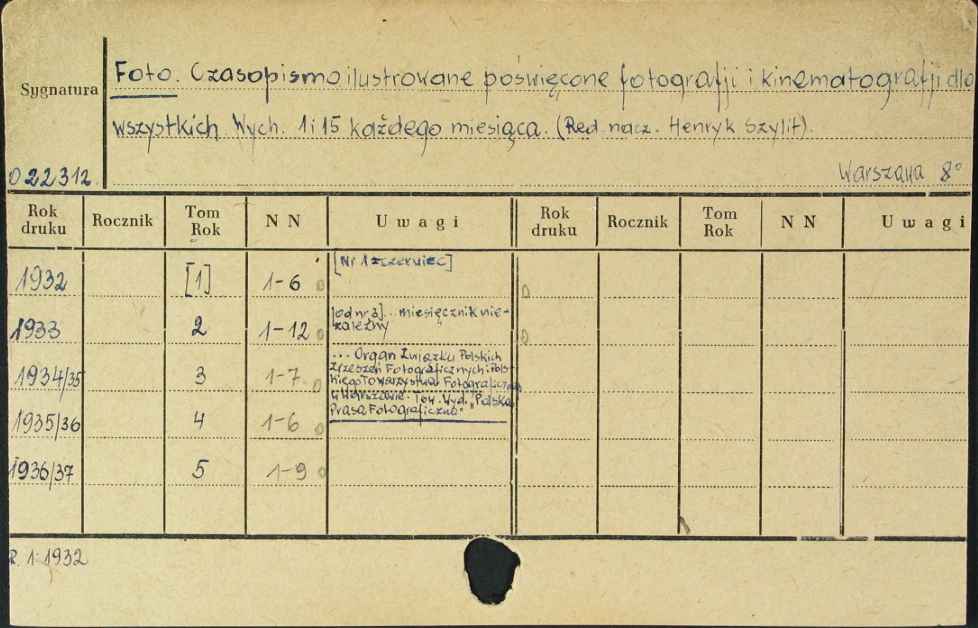 Sygnatura
Foto. Czasopismo ilustrowane poświęcone fotografji i kinematografji dla
wszystkich. Wych. 1 i 15 każdego miesiąca. (Red. nacz. Henryk Szylit).
022312
Warszawa 8°
Rok druku Rocznik Tom Rok N N Uwagi Rok druku Rocznik Tom Rok N N Uwagi
1932 [1] 1-6 [Nr 1 z czerwiec]
1933 2 1-12 [od nr 3]... miesięcznik nie-
zależny
1934/35 3 1-7 ... Organ Związku Polskich
Zrzeszeń Fotograficznych i Pols-
kiego Towarzystwa Fotograficznego
w Warszawie. Tow. Wyd. "Polska
Prasa Fotograficzna"
1935/36 4 1-6
1936/37 5 1-9
R. 1: 1932